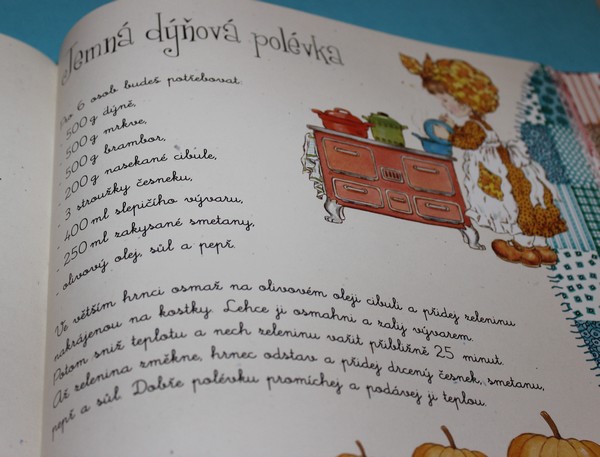 Jemná dýňová polévka
Pro 6 osob budeš potřebovat:
500 g dýně,
500 g mrkve,
500 g brambor,
200 g nasekané cibule,
3 stroužky česneku,
400 ml slepičího vývaru,
250 ml zakysané smetany,
olivový olej, sůl a pepř.
Ve větším hrnci osmaž na olivovém oleji cibuli a přidej zeleninu
nakrájenou na kostky. Lehce ji osmahni a zalij vývarem.
Potom sniž teplotu a nech zeleninu vařit přibližně 25 minut.
Až zelenina změkne, hrnec odstav a přidej drcený česnek, smetanu,
pepř a sůl. Dobře polévku promíchej a podávej ji teplou.